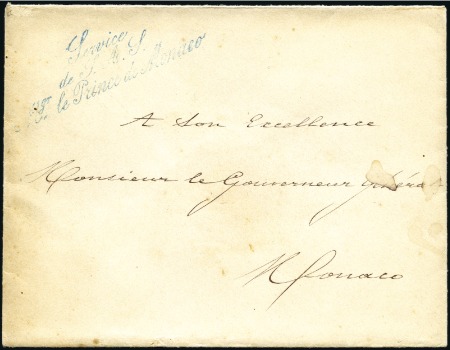 Service
de S. A. S.
Mgr le Prince de Monaco
A Son Excellence
Monsieur le Gouverneur Général
Monaco